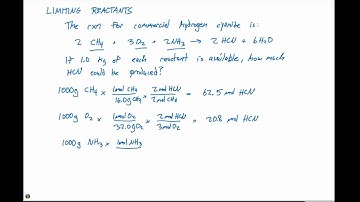 LIMITING REACTANTS
The rxn for commercial hydrogen cyanide is:
2 CH4 + 3 O2 + 2 NH3 → 2 HCN + 6 H2O
If 1.0 kg of each reactant is available, how much
HCN could be produced?
1000g CH4 × 1 mol CH4 / 16.0g CH4 × 2 mol HCN / 2 mol CH4 = 62.5 mol HCN
1000g O2 × 1 mol O2 / 32.0g O2 × 2 mol HCN / 3 mol O2 = 20.8 mol HCN
1000g NH3 × 1 mol NH3